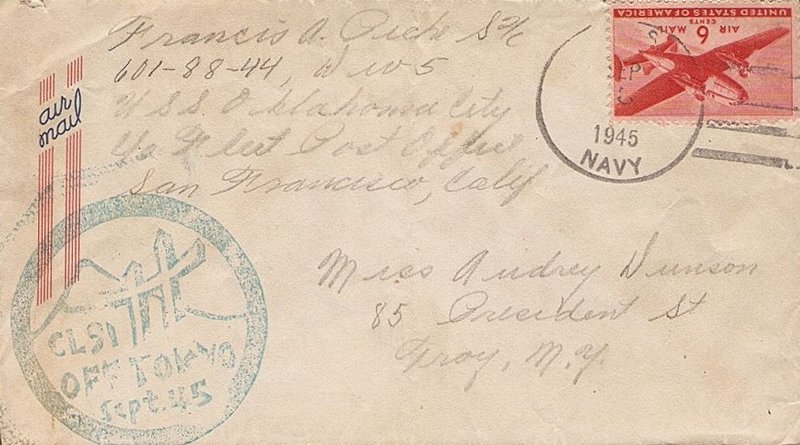 Francis A. Piche S1/c
601-88-44, Div 5
U.S.S. Oklahoma City
c/o Fleet Post Office
San Francisco, Calif
air
mail
UNITED STATES OF AMERICA
AIR MAIL
6
CENTS
SEP
1945
NAVY
Miss Audrey Dunson
85 President St
Troy, N.Y.
CL91
OFF TOKYO
Sept. 45